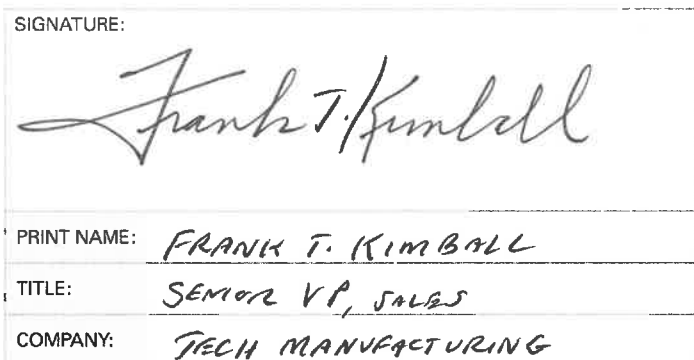 SIGNATURE:
Frank T. Kimball
PRINT NAME: FRANK T. KIMBALL
TITLE: SENIOR VP, SALES
COMPANY: TECH MANUFACTURING